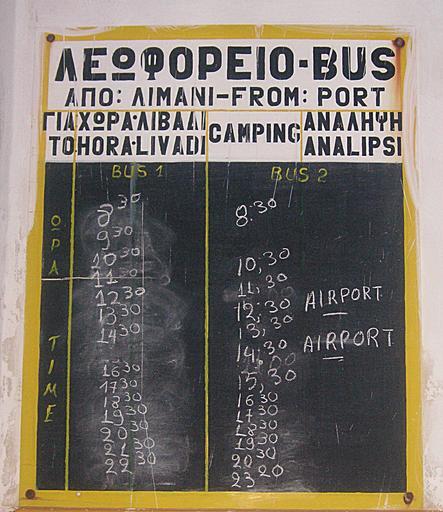 ΛΕΩΦΟΡΕΙΟ-BUS
ΑΠΟ: ΛΙΜΑΝΙ-FROM: PORT
ΓΙΑ ΧΩΡΑ·ΛΙΒΑΔΙ CAMPING ΑΝΑΛΗΨΗ
TO HORA·LIVADI ANALIPSI
BUS 1 BUS 2
ΩΡΑ
TIME
8 30 8.30
9 30
10 30 10,30
11 30 11,30
12 30 12.30 AIRPORT
13 30 13,30
14 30 14,30 AIRPORT
15,30
16 30 16 30
17 30 17 30
18 30 18 30
19 30 19 30
20 30 20 30
21 30
22 30 23 20